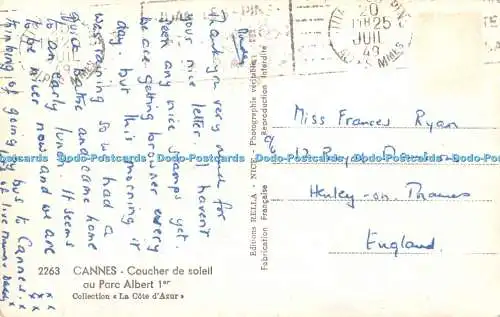 Sunday
Thank you very much for
your nice letter. I haven't
seen any nice stamps yet.
We are getting browner every
day, but this morning it
was raining so we had a
quick bathe and come home
to an early lunch. It seems
to be nicer now and we are
thinking of going by bus to Cannes.
of love Mummy & Daddy
x x
2263 CANNES - Coucher de soleil
au Parc Albert 1er
Collection « La Côte d'Azur »
Editions RELLA, NICE - Photographie véritable
Fabrication Française - Reproduction Interdite
20
25
JUIL
49
Miss Frances Ryan
Henley-on-Thames
England.
Dodo-Postcards Dodo-Postcards Dodo-Postcards Dodo-Postcards Dodo-Postcards